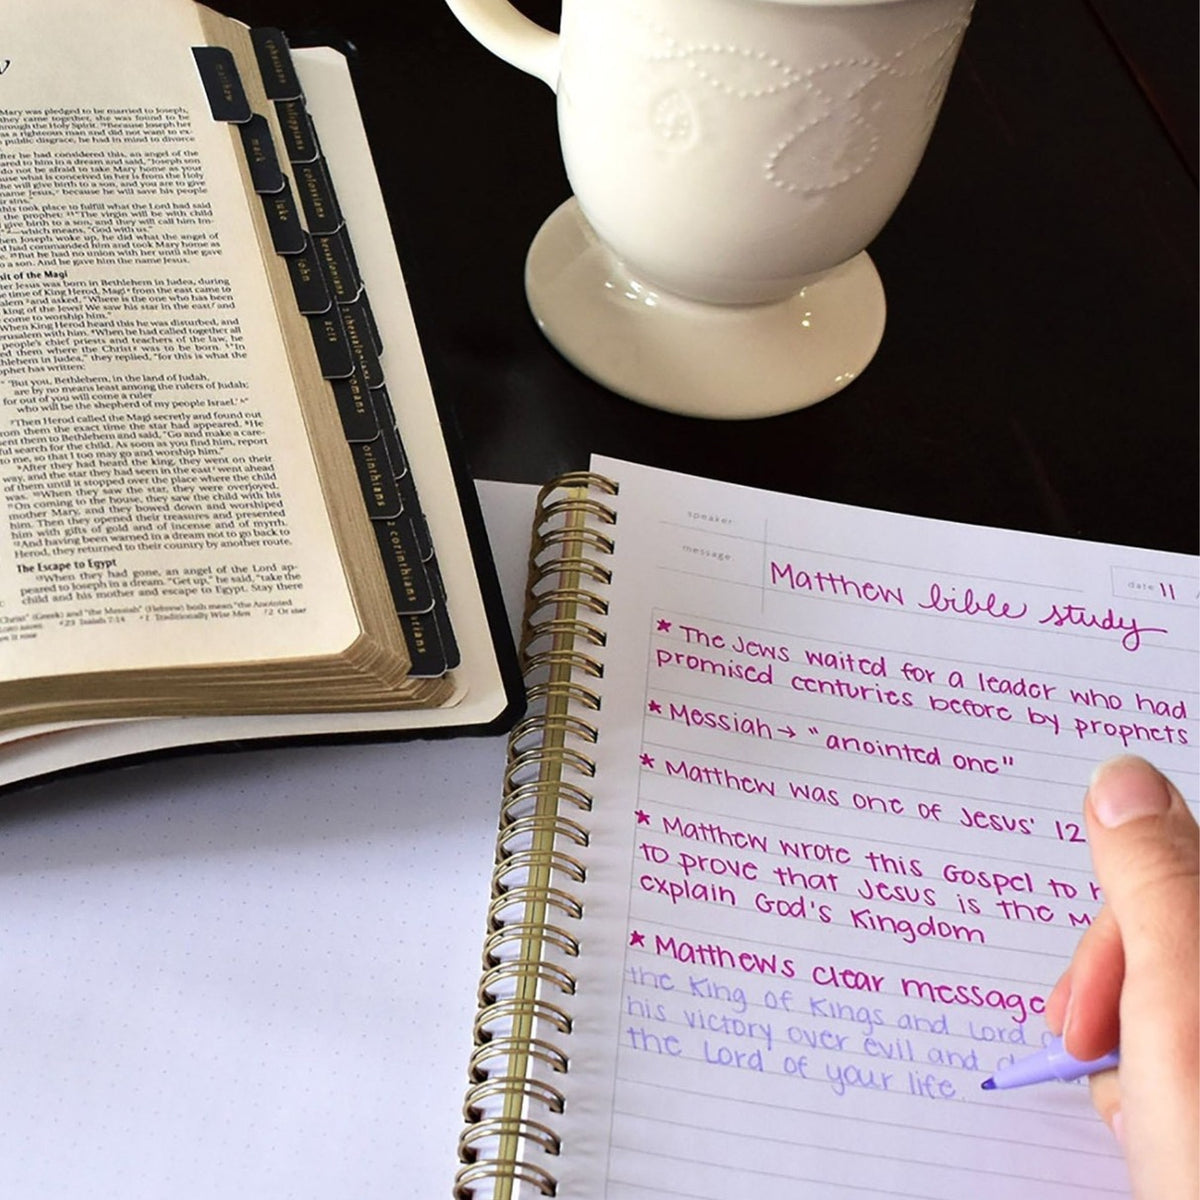 Mary was pledged to be married to Joseph,
they came together, she was found to be
through the Holy Spirit. 19Because Joseph her
as a righteous man and did not want to ex-
public disgrace, he had in mind to divorce
after he had considered this, an angel of the
to him in a dream and said, "Joseph son
do not be afraid to take Mary home as your
what is conceived in her is from the Holy
he will give birth to a son, and you are to give
name Jesus, because he will save his people
sins."
this took place to fulfill what the Lord had said
the prophet: 23"The virgin will be with child
give birth to a son, and they will call him Im-
—which means, "God with us."
Joseph woke up, he did what the angel of
had commanded him and took Mary home as
25But he had no union with her until she gave
to a son. And he gave him the name Jesus.
sit of the Magi
Jesus was born in Bethlehem in Judea, during
time of King Herod, Magi from the east came to
2and asked, "Where is the one who has been
king of the Jews? We saw his star in the east and
come to worship him."
When King Herod heard this he was disturbed, and
Jerusalem with him. 4When he had called together all
people's chief priests and teachers of the law, he
them where the Christ was to be born. 5"In
Bethlehem in Judea," they replied, "for this is what the
prophet has written:
6"'But you, Bethlehem, in the land of Judah,
are by no means least among the rulers of Judah;
for out of you will come a ruler
who will be the shepherd of my people Israel.'"
7Then Herod called the Magi secretly and found out
from them the exact time the star had appeared. 8He
sent them to Bethlehem and said, "Go and make a care-
ful search for the child. As soon as you find him, report
to me, so that I too may go and worship him."
9After they had heard the king, they went on their
way, and the star they had seen in the east went ahead
of them until it stopped over the place where the child
was. 10When they saw the star, they were overjoyed.
11On coming to the house, they saw the child with his
mother Mary, and they bowed down and worshiped
him. Then they opened their treasures and presented
him with gifts of gold and of incense and of myrrh.
12And having been warned in a dream not to go back to
Herod, they returned to their country by another route.
The Escape to Egypt
13When they had gone, an angel of the Lord ap-
peared to Joseph in a dream. "Get up," he said, "take the
child and his mother and escape to Egypt. Stay there
(Greek) and "the Messiah" (Hebrew) both mean "the Anointed
23 Isaiah 7:14 1 Traditionally Wise Men 2 Or star
matthew
mark
luke
john
acts
romans
corinthians
2 corinthians
ephesians
philippians
colossians
thessalonians
2 thessalonians
speaker
message
date 11
Matthew bible study
* The Jews waited for a leader who had
promised centuries before by prophets
* Messiah → "anointed one"
* Matthew was one of Jesus' 12
* Matthew wrote this Gospel to
to prove that Jesus is the M
explain God's Kingdom
* Matthews clear message
the King of Kings and Lord
his victory over evil and
the Lord of your life.